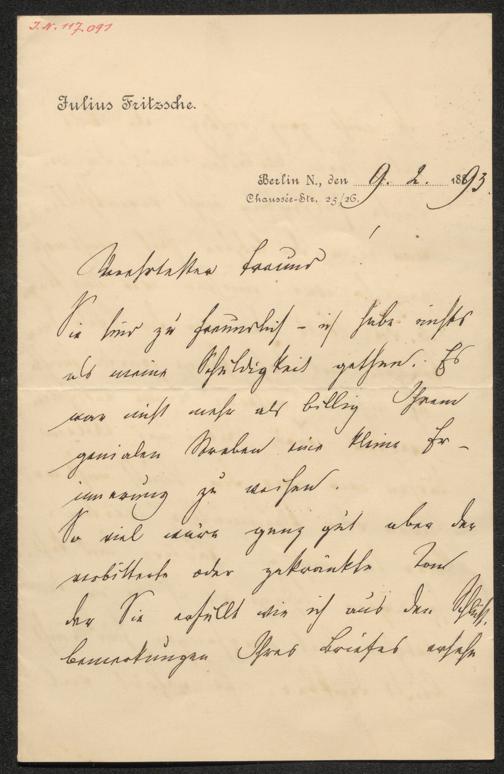 I.N. 117.091
Julius Fritzsche.
Berlin N., den 9. 2. 1893.
Chaussée-Str. 25/26.
Verehrtester Freund!
Sie sind zu freundlich – ich habe nichts
als meine Schuldigkeit gethan. Es
war nicht mehr als billig Ihrem
genialen Streben eine kleine Er-
innerung zu weihen.
So viel wäre ganz gut aber der
verbitterte oder gekränkte Ton
der Sie erfüllt wie ich aus den Schluß-
bemerkungen Ihres Briefes ersehe